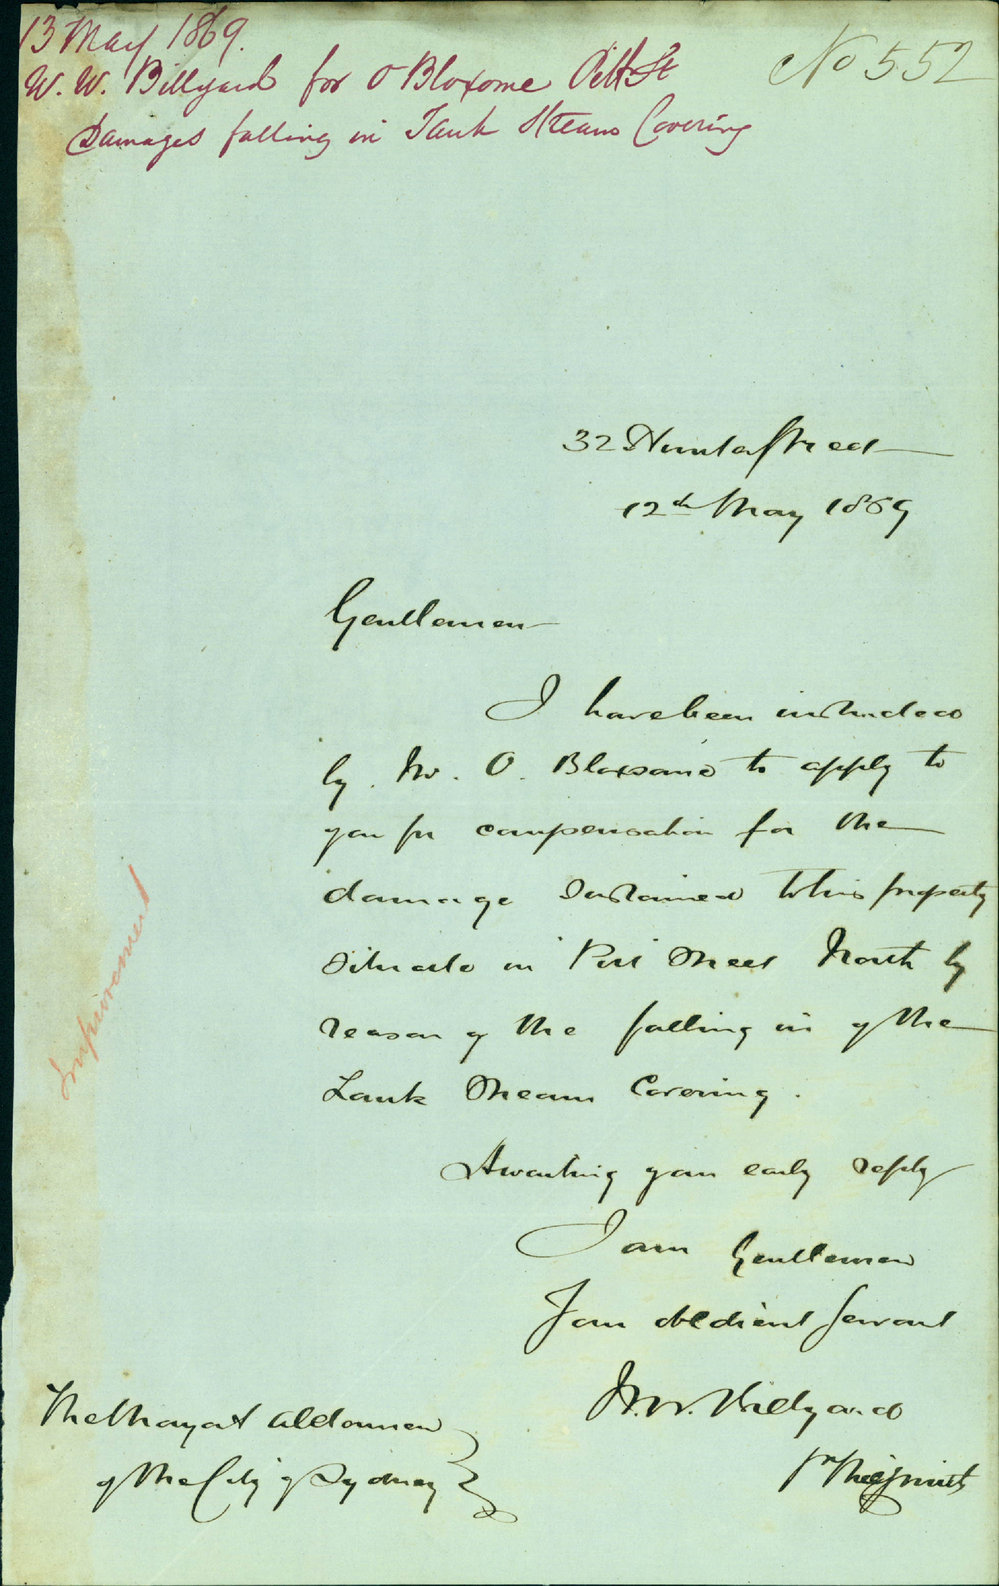 13 May 1869.
No 552
W. W. Billyard for O Bloxome Pitt St
Damages falling in Tank Stream Covering
32 Hunter Street
12th May 1869
Gentlemen
I have been instructed
by Mr. O. Bloxsome to apply to
you for compensation for the
damage sustained to his property
situate in Pitt Street North by
reason of the falling in of the
Tank Stream Covering.
Awaiting your early reply
I am Gentlemen
Your obedient Servant
W. W. Billyard
The Mayor & Aldermen
of the City of Sydney
Improvement